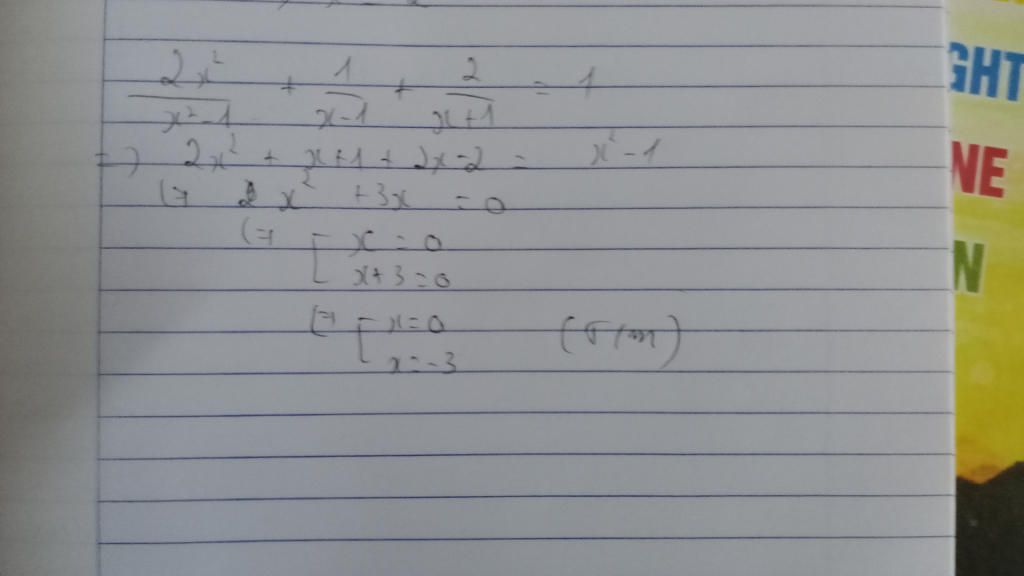 2x²/(x²-1) + 1/(x-1) + 2/(x+1) = 1
=) 2x² + x+1 + 2x-2 = x²-1
(=) x² +3x = 0
(=) [ x = 0
x+3=0
(=) [ x=0 (T/m)
x=-3
GHT
NE
N